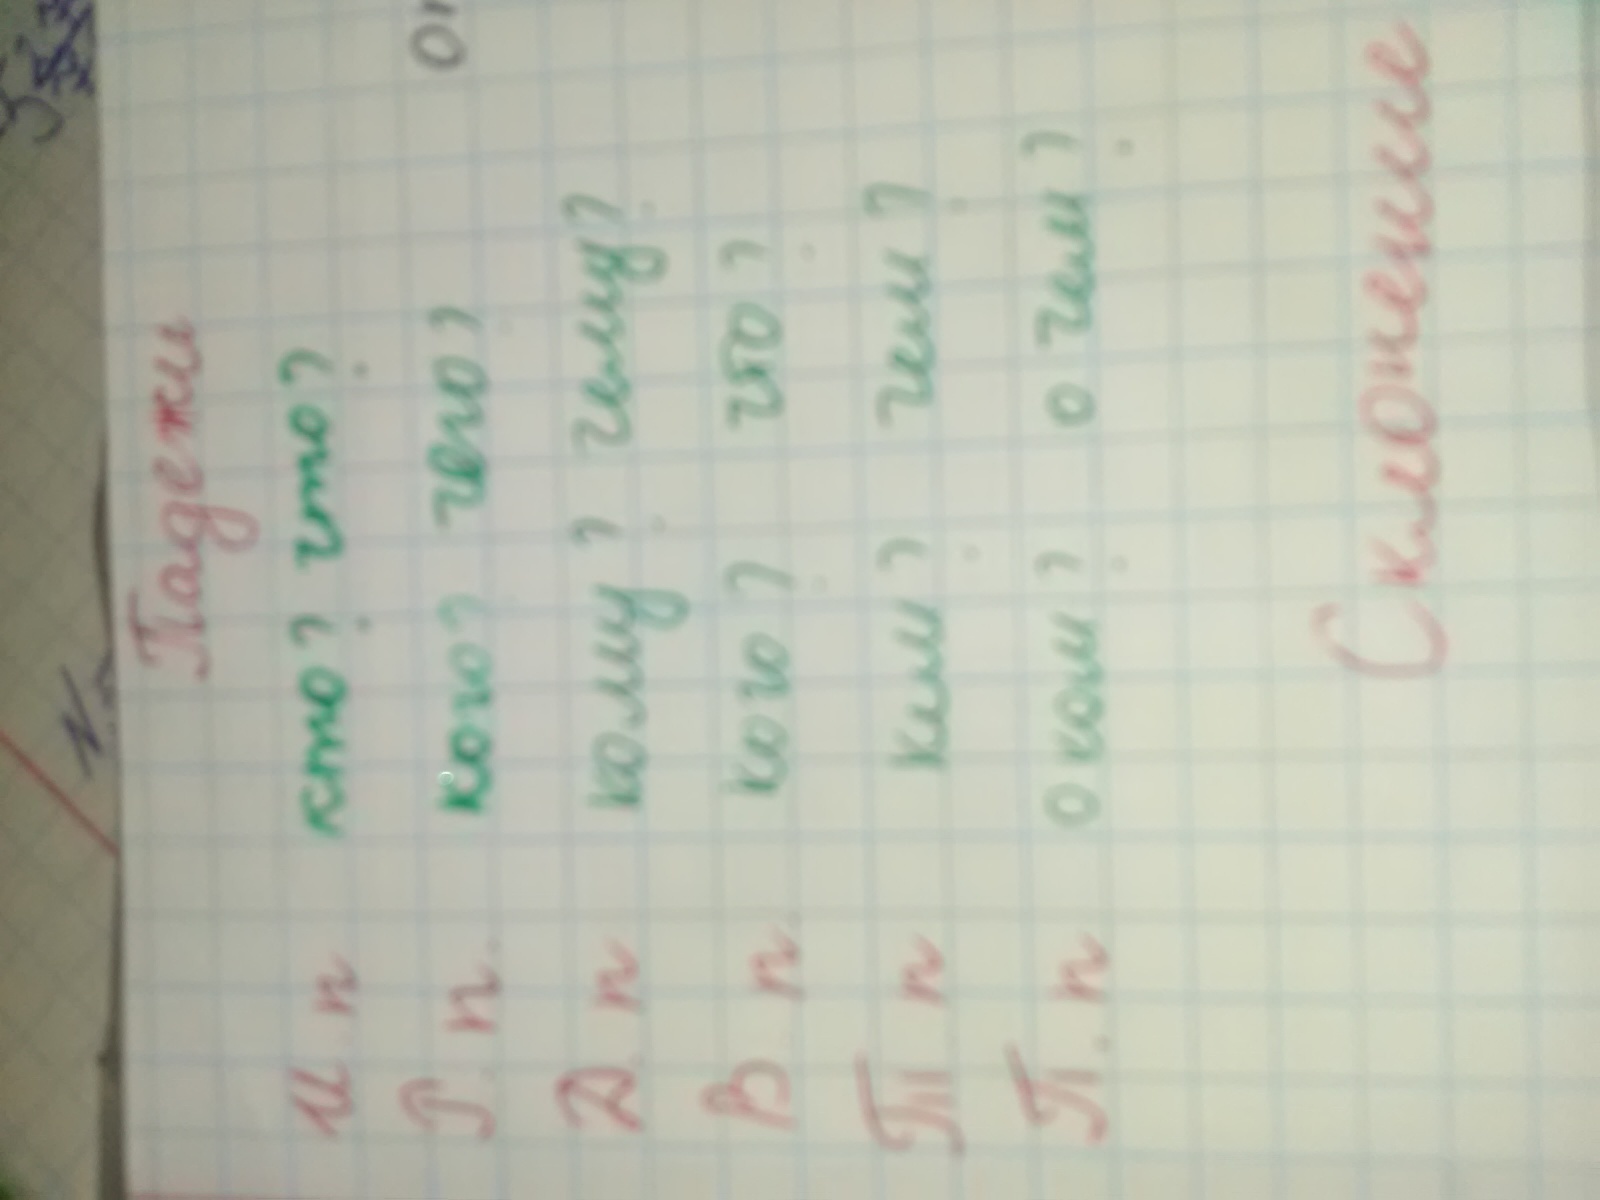 Падежи
И. п кто? что?
Р. п. кого? чего?
Д. п кому? чему?
В. п. кого? что?
Т. п кем? чем?
П. п о ком? о чем?
Склонение